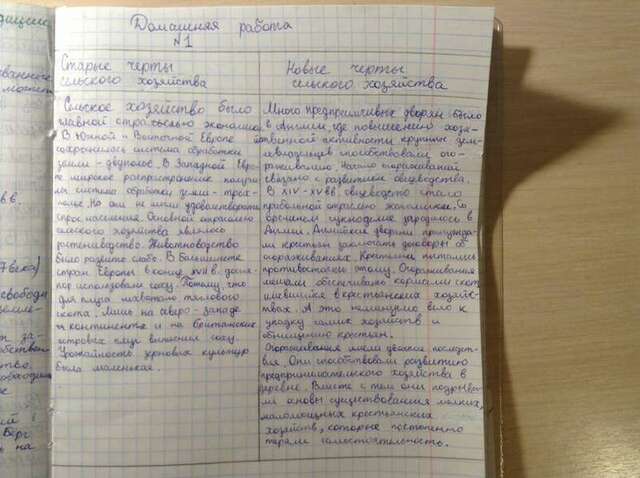 Домашняя работа
№1
Старые черты
сельского хозяйства
Сельское хозяйство было
главной отраслью экономики.
В Южной и Восточной Европе
сохранилась система обработки
земли - двуполье. В Западной Евро-
пе широкое распространение получи-
ла система обработки земли - трех-
полье. Но они не могли удовлетворить
спрос населения. Основной отраслью
сельского хозяйства являлось
растениеводство. Животноводство
было развито слабо. В большинстве
стран Европы в конце XVII в. до сих
пор использовали соху. Потому, что
для плуга нехватало тяглового
скота. Лишь на северо-западе
континента и на британских
островах плуг вытеснил соху.
Урожайность зерновых культур
была маленькая.
Новые черты
сельского хозяйства
Много предприимчивых дворян было
в Англии, где повышению хозя-
йственной активности крупных зем-
левладельцев способствовали ого-
раживания. Начало огораживаний
связано с развитием овцеводства.
В XIV-XV вв. овцеводство стало
прибыльной отраслью экономики. Со
временем сукноделие зародилось в
Англии. Английские дворяне принужда-
ли крестьян заключать договоры об
огораживаниях. Крестьяне пытались
противостоять этому. Огораживания
мешали обеспечивать кормами скот
имевшийся в крестьянских хозяйс-
твах. А это неминуемо вело к
упадку самих хозяйств и
обнищанию крестьян.
Огораживания имели двоякие последст-
вия. Они способствовали развитию
предпринимательского хозяйства в
деревне. Вместе с тем они подрыва-
ли основы существования мелких,
маломощных крестьянских
хозяйств, которые постепенно
теряли самостоятельность.